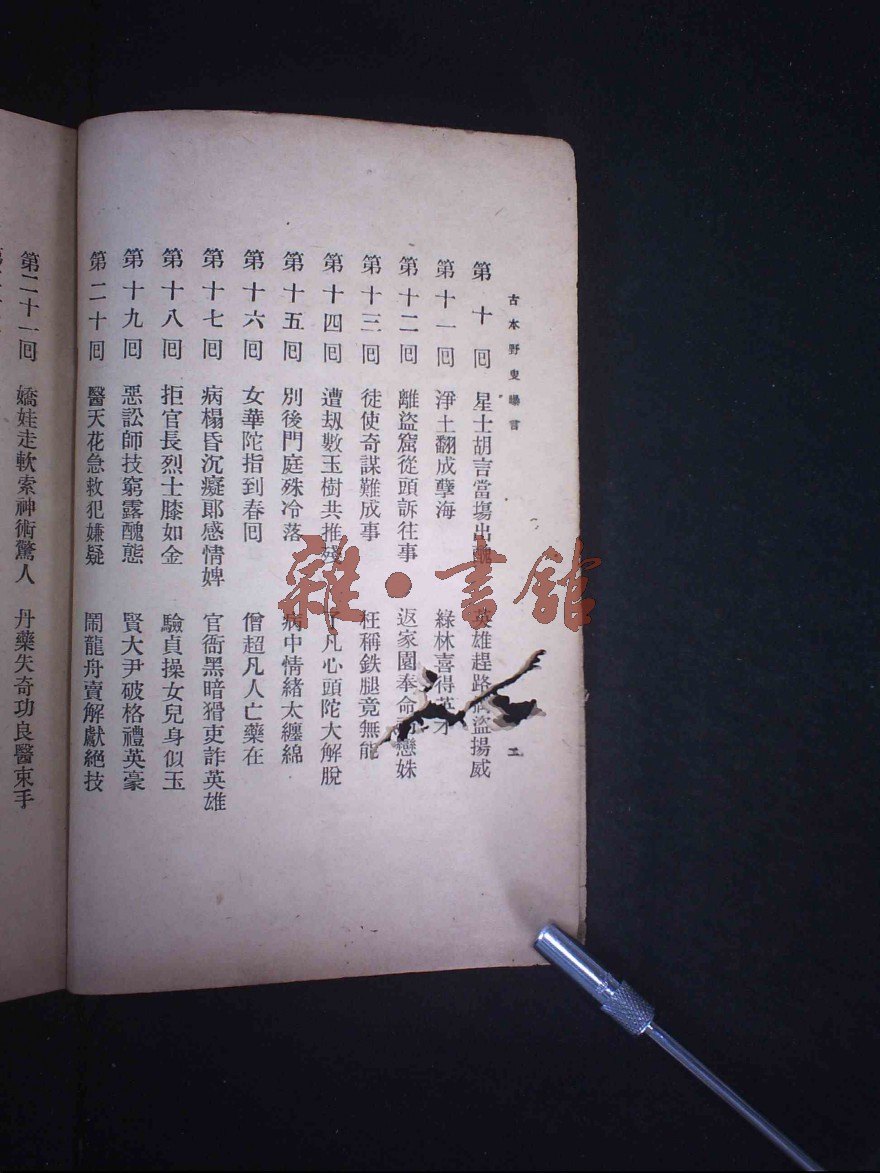 古本野叟曝言
二
第十回 星士胡言當塲出醜 英雄趕路 盜揚威
第十一回 淨土翻成孽海 綠林喜得英才
第十二回 離盜窟從頭訴往事 返家園奉命 戀姝
第十三回 徒使奇謀難成事 枉稱鉄腿竟無能
第十四回 遭刼數玉樹共摧殘 了凡心頭陀大解脫
第十五回 別後門庭殊冷落 病中情緒太纏綿
第十六回 女華陀指到春回 僧超凡人亡藥在
第十七回 病榻昏沉癡郞感情婢 官衙黑暗猾吏詐英雄
第十八回 拒官長烈士膝如金 驗貞操女兒身似玉
第十九回 惡訟師技窮露醜態 賢大尹破格禮英豪
第二十回 醫天花急救犯嫌疑 鬧龍舟賣解獻絕技
第二十一回 嬌娃走軟索神術驚人 丹藥失奇功良醫束手
雜·書館